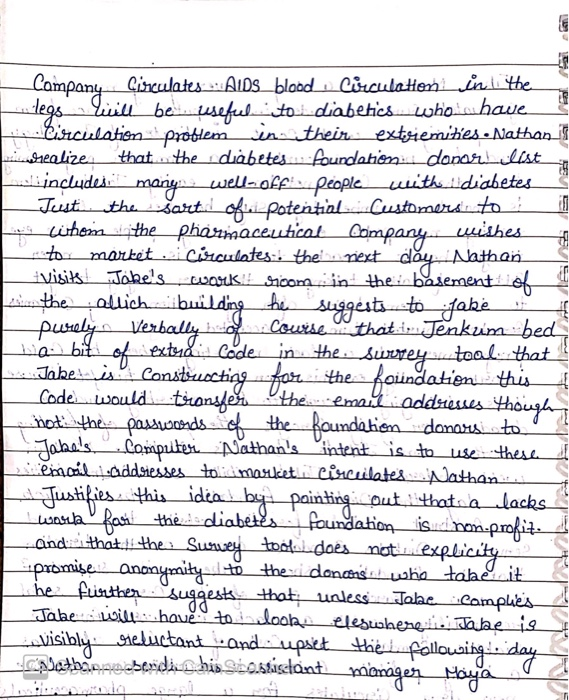 Company Circulates AIDS blood Circulation in the
legs will be useful to diabetics who have
Circulation problem in their extremities. Nathan
realize that the diabetes foundation donor list
includes many well-off people with diabetes
Just the sort of potential Customers to
whom the pharmaceutical Company wishes
to market. Circulates. the next day Nathan
visits Jake's work room in the basement of
the allich building he suggests to Jake
purely Verbally of Course that Jenkum bed
a bit of extra Code in the survey tool that
Jake is Constructing for the foundation this
Code would transfer the email addresses though
not the passwords of the foundation donors to
Jake's Computer Nathan's intent is to use these
email addresses to market circulates Nathan
Justifies this idea by pointing out that a lacks
work for the diabetes foundation is non-profit.
and that the Survey tool does not explicity
promise anonymity to the donors who take it
he further suggests that, unless Jake Complies
Jake will have to look eleswhere. Jake is
visibly reluctant and upset the following day
sends his assistant manager Maya